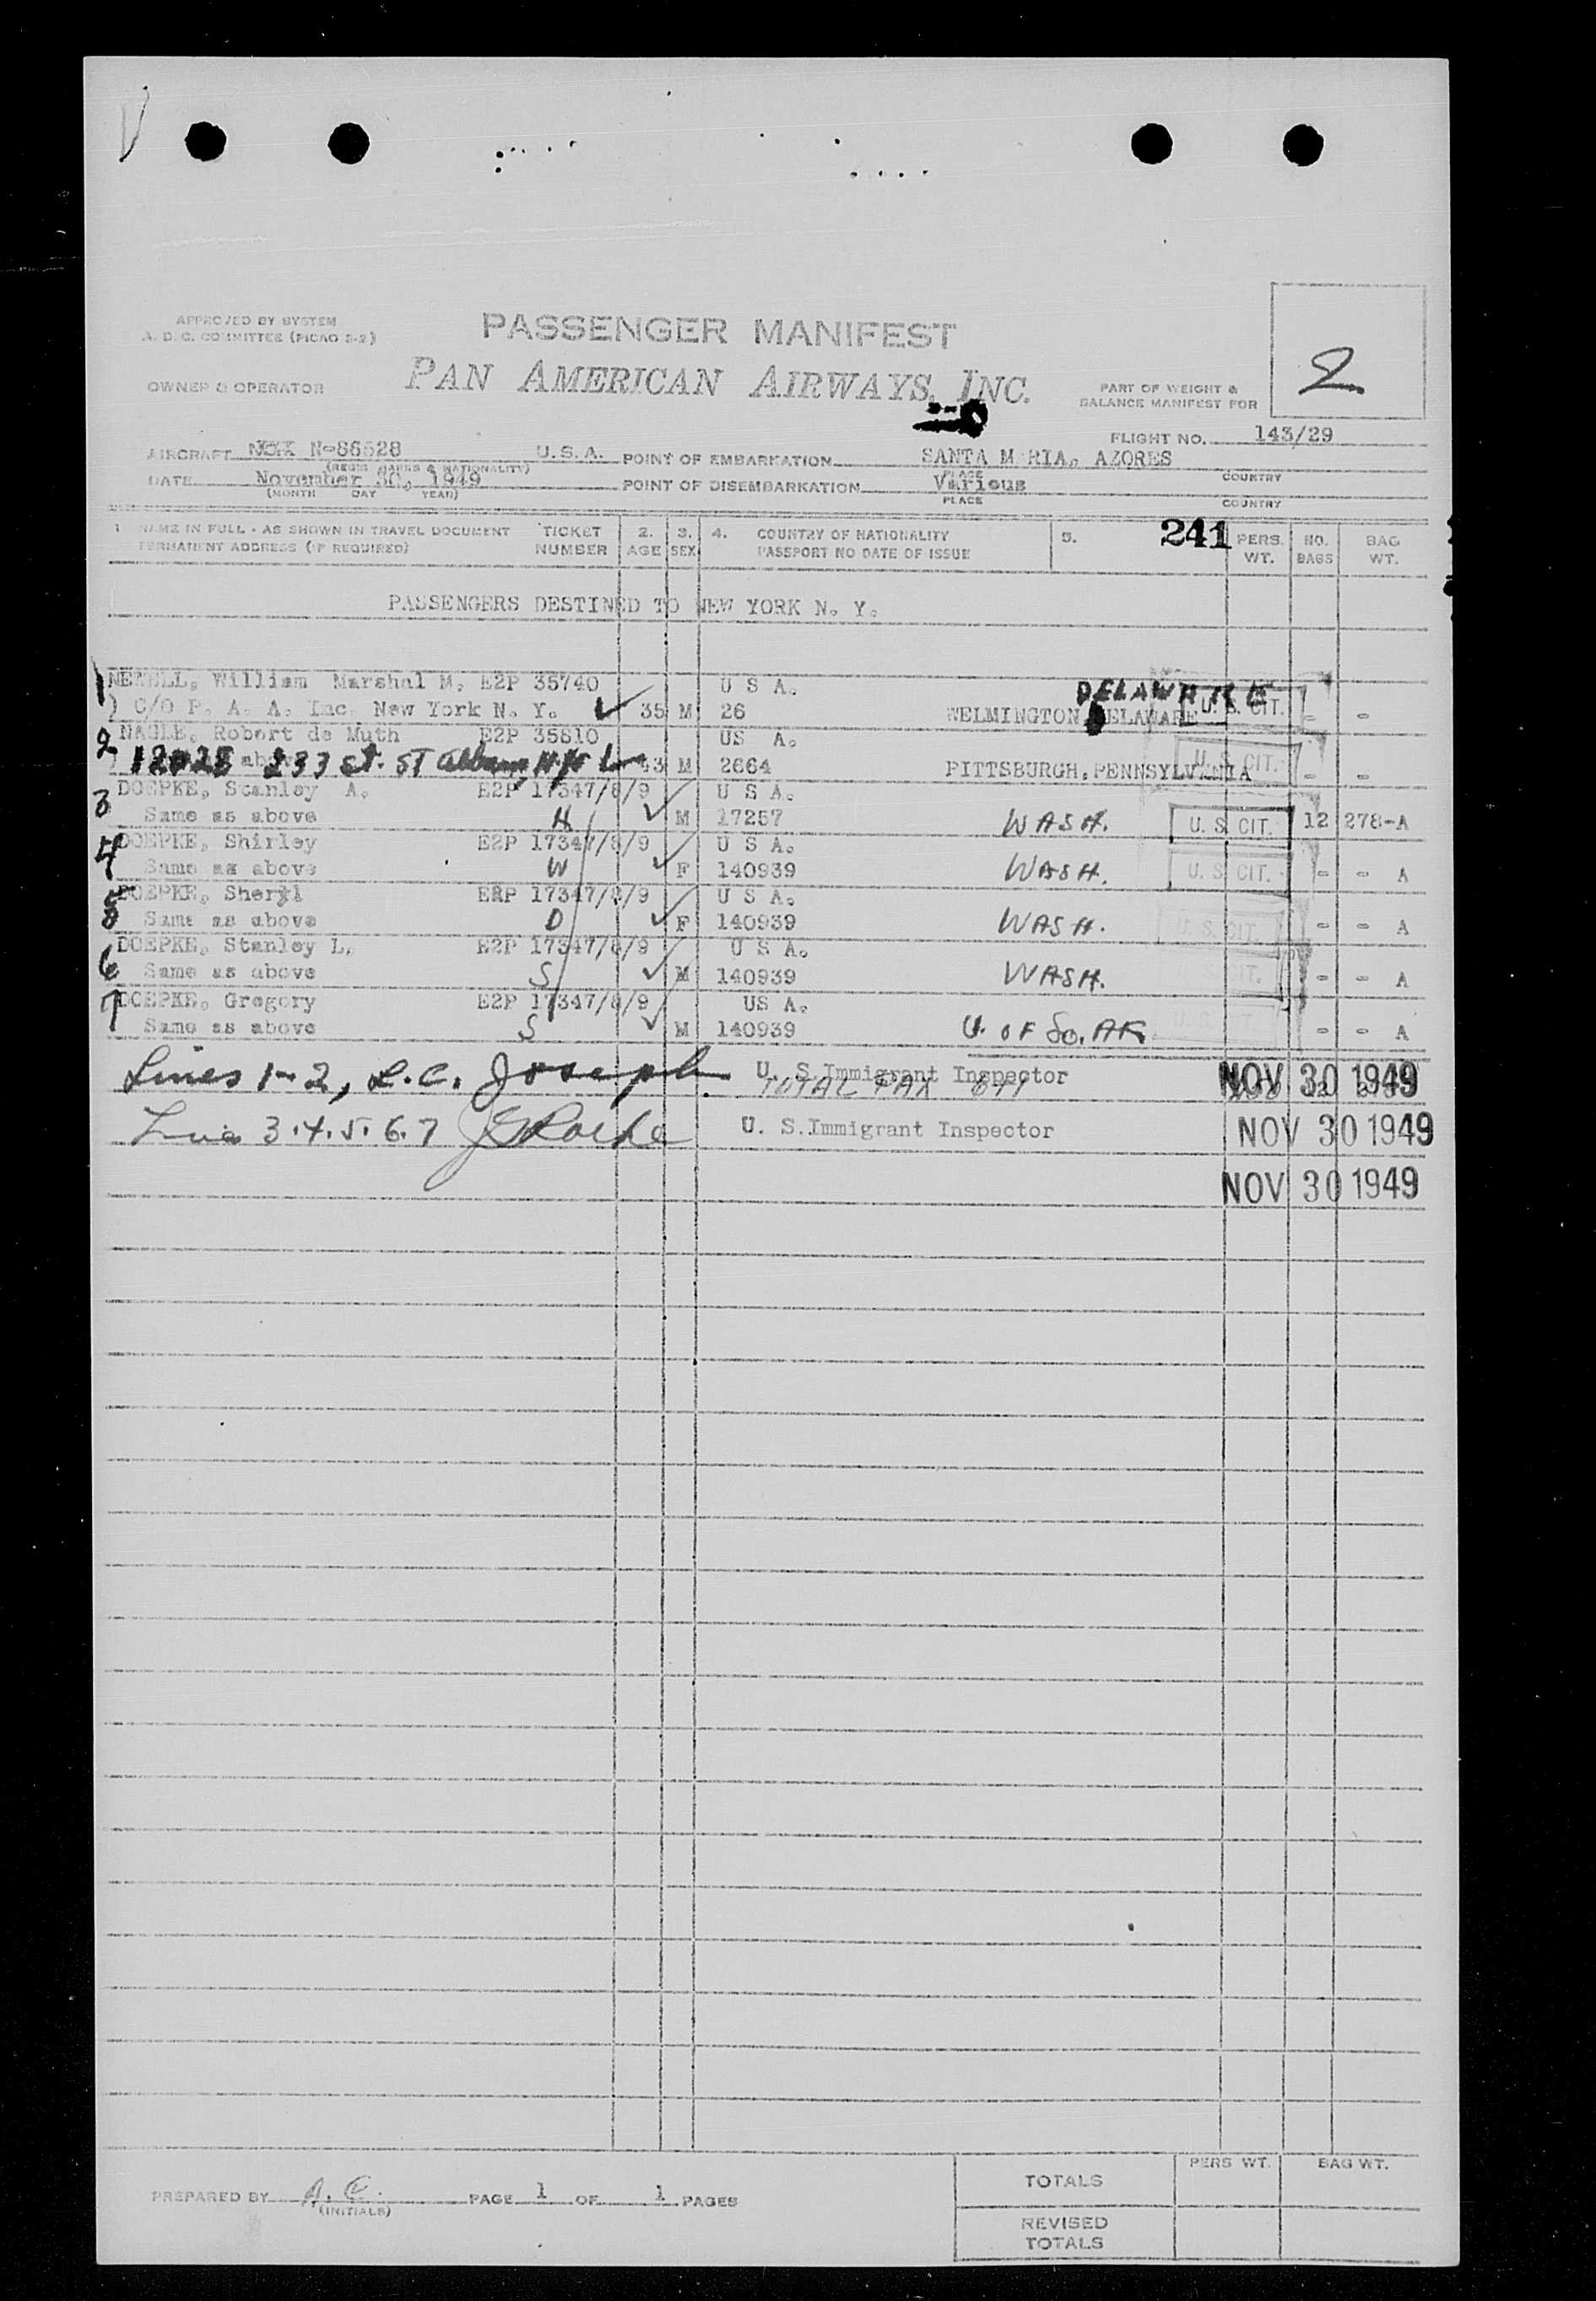 APPROVED BY SYSTEM
A. D. C. COMMITTEE (PICAO 2-2)
OWNER & OPERATOR
PASSENGER MANIFEST
PAN AMERICAN AIRWAYS, INC.
PART OF WEIGHT &
BALANCE MANIFEST FOR
2
FLIGHT NO. 143/29
AIRCRAFT N-86528 U.S.A. POINT OF EMBARKATION SANTA M RIA, AZORES
(REGIS MARKS & NATIONALITY) PLACE COUNTRY
DATE November 30, 1949 POINT OF DISEMBARKATION Various
(MONTH DAY YEAR) PLACE COUNTRY
241
1 NAME IN FULL - AS SHOWN IN TRAVEL DOCUMENT TICKET 2. 3. 4. COUNTRY OF NATIONALITY 5. PERS. NO. BAG
PERMANENT ADDRESS (IF REQUIRED) NUMBER AGE SEX PASSPORT NO DATE OF ISSUE WT. BAGS WT.
PASSENGERS DESTINED TO NEW YORK N. Y.
1 William Marshal M, E2P 35740 U S A. DELAWARE
) C/O P. A. A. Inc. New York N. Y. 35 M 26 WELMINGTON DELAWARE U. S. CIT. - -
2 NAGLE, Robert de Muth E2P 35810 US A.
233 St. ST 43 M 2664 PITTSBURGH, PENNSYLVANIA U. S. CIT. - -
3 DOEPKE, Stanley A. E2P 17347/8/9 U S A.
Same as above H M 17257 WASH. U. S. CIT. 12 278-A
4 DOEPKE, Shirley E2P 17347/8/9 U S A.
Same as above W F 140939 WASH. U. S. CIT. - - A
5 DOEPKE, Sheryl 17347/8/9 U S A.
Same as above D F 140939 WASH. U. S. CIT. - - A
6 DOEPKE, Stanley L, E2P 17347/8/9 U S A.
Same as above S M 140939 WASH. CIT. - - A
7 DOEPKE, Gregory E2P 17347/8/9 US A.
Same as above S M 140939 U. OF SO. AFR. - - A
Lines 1-2, L.C. Joseph U. S. Immigrant Inspector NOV 30 1949
TOTAL PAX
3.4.5.6.7 U. S. Immigrant Inspector NOV 30 1949
NOV 30 1949
PREPARED BY A. C. PAGE 1 OF 1 PAGES
(INITIALS)
PERS WT. BAG WT.
TOTALS
REVISED
TOTALS